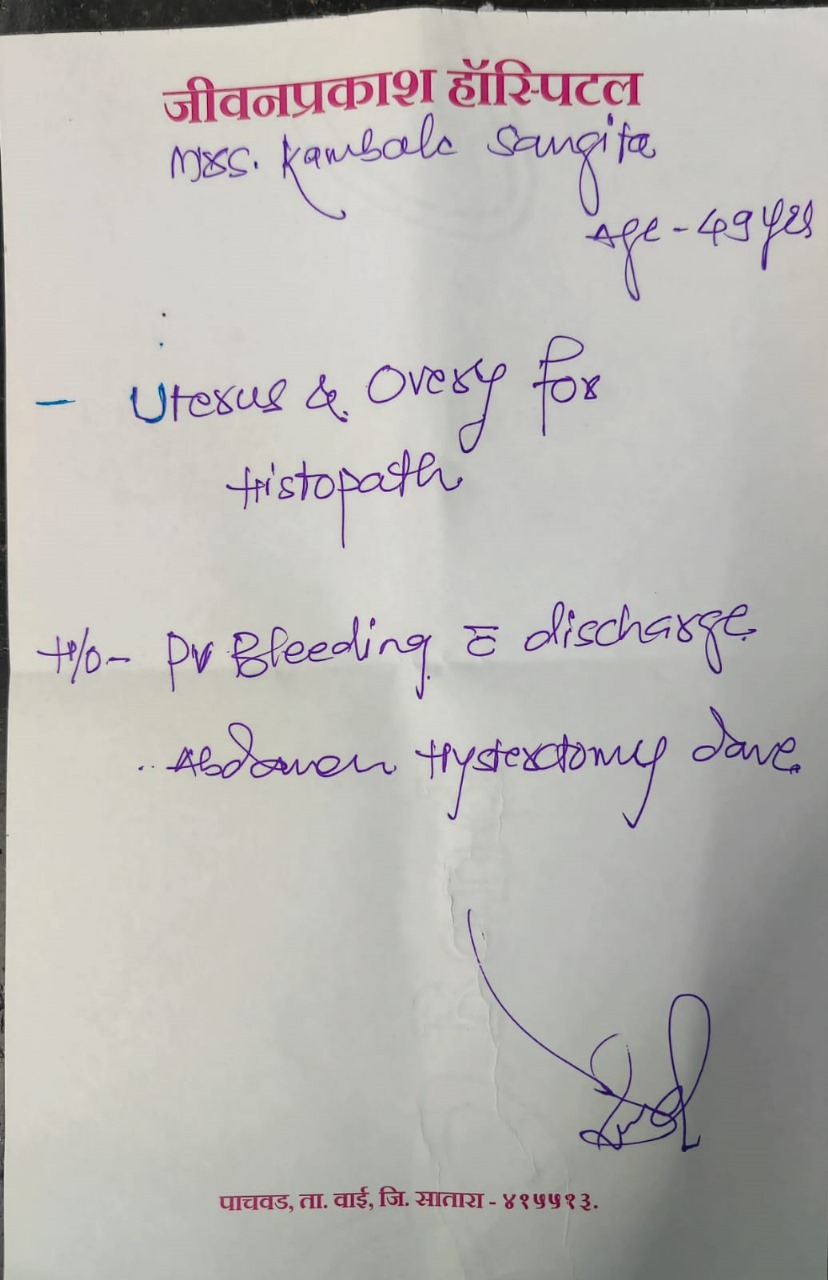 जीवनप्रकाश हॉस्पिटल
Mrs. Kamble Sangita
Age - 49 yrs
- Uterus & Overy for
Histopath
H/o - PV Bleeding c̄ discharge
Abdomen Hysterctomy done.
पाचवड, ता. वाई, जि. सातारा - ४१५५१३.